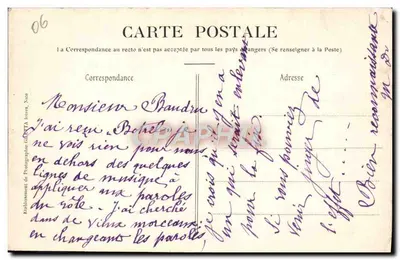 06
CARTE POSTALE
La Correspondance au recto n'est pas acceptée par tous les pays étrangers (Se renseigner à la Poste)
Correspondance
Adresse
Monsieur Baudru
J'ai reçu "Bohè" je
ne vois rien pour nous
en dehors des quelques
lignes de musique à
appliquer aux paroles
du rôle. J'ai cherché
dans de vieux morceaux
en changeant les paroles,
je crois qu'il y en a
un qui serait enlevé
pour la
Si vous pouviez
venir juger de
l'effet .....
Bien reconnaissant
Etablissement de Photographie Frères, Nice